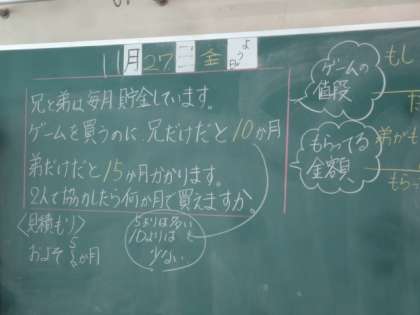 11月27日金よう日
兄と弟は毎月貯金しています。
ゲームを買うのに、兄だけだと10か月
弟だけだと15か月かかります。
2人で協力したら何か月で買えますか。
〈見積もり〉
およそ
か月
5よりは多い
10よりは
少ない
ゲームの
値段
もらってる
金額
もし
弟がも
もら